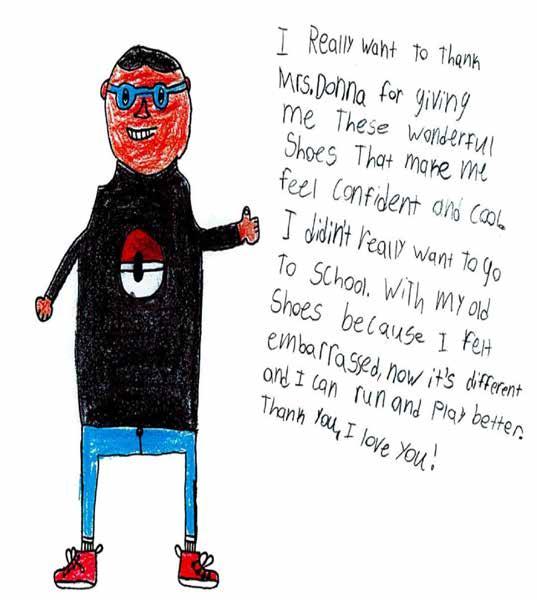 I Really want to thank
Mrs. Donna for giving
me These wonderful
Shoes That make me
feel confident and cool.
I didin't really want to go
To school. With my old
Shoes because I felt
embarrassed, now it's different
and I can run and Play better.
Thank You, I love You!